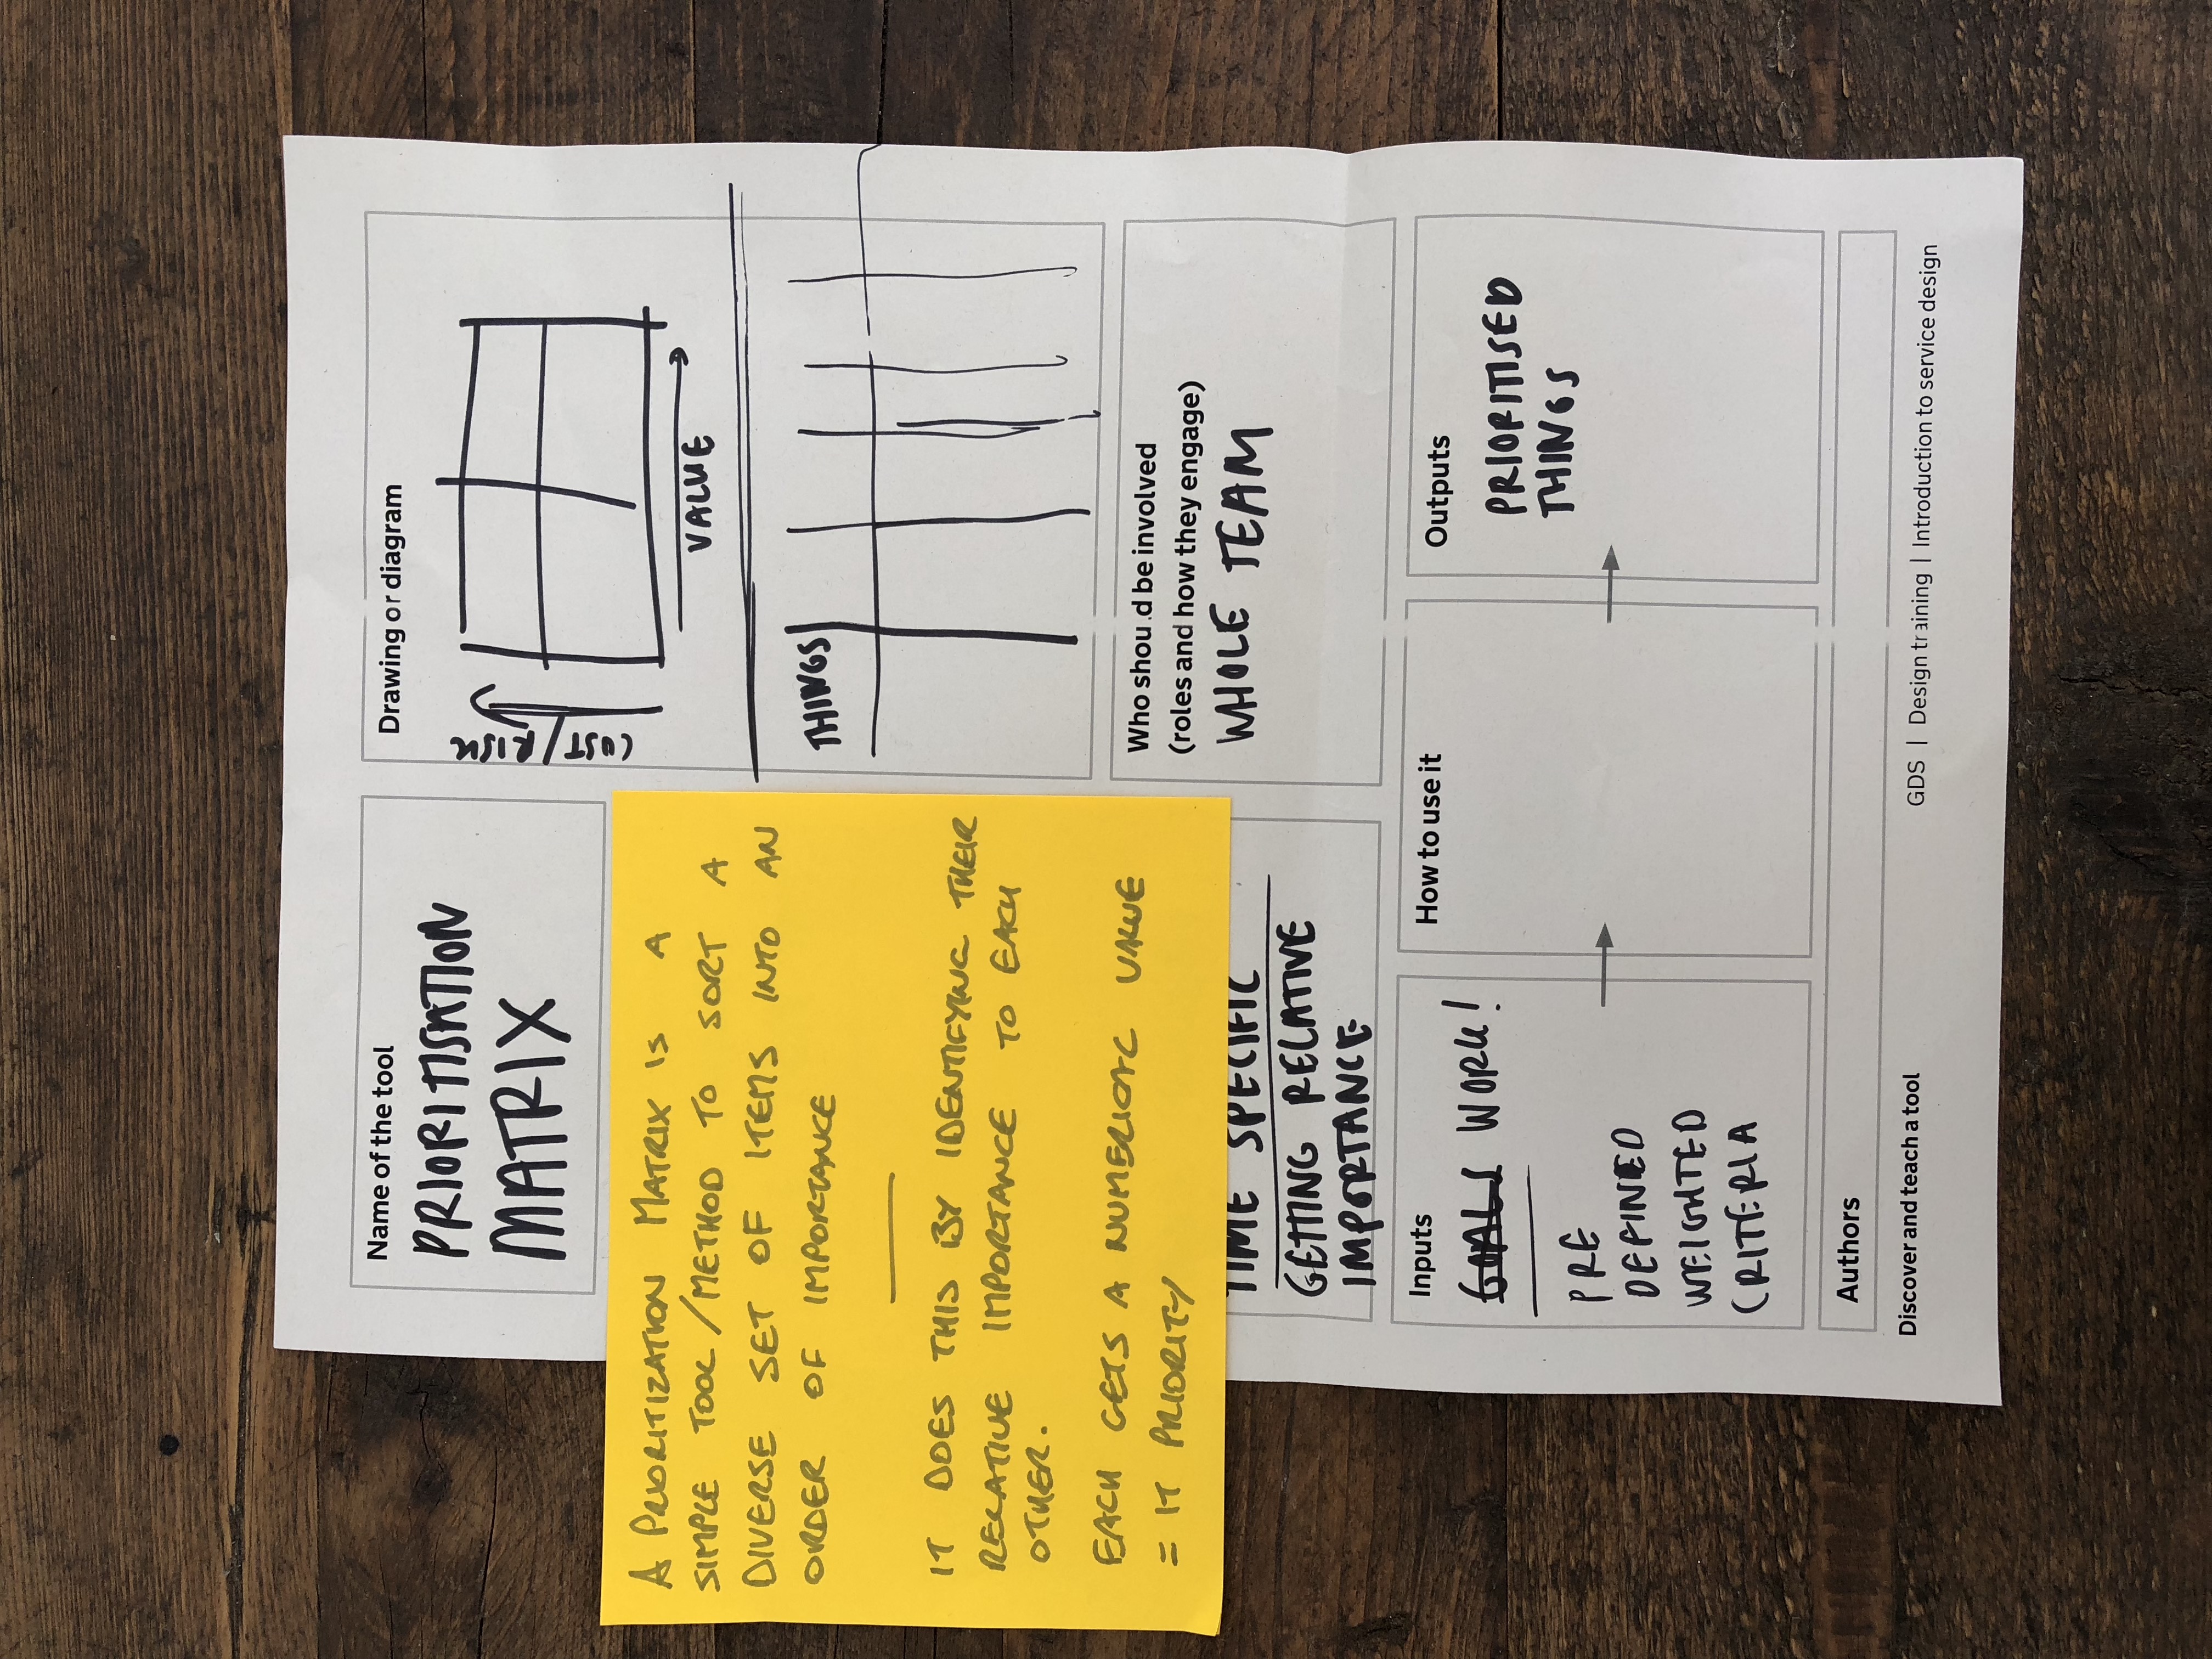 Name of the tool
PRIORITISATION
MATRIX
A PRIORITIZATION MATRIX IS A
SIMPLE TOOL/METHOD TO SORT A
DIVERSE SET OF ITEMS INTO AN
ORDER OF IMPORTANCE
IT DOES THIS BY IDENTIFYING THEIR
RELATIVE IMPORTANCE TO EACH
OTHER.
EACH GETS A NUMERICAL VALUE
= IT PRIORITY
TIME SPECIFIC
GETTING RELATIVE
IMPORTANCE
Drawing or diagram
COST/RISK
VALUE
THINGS
Who should be involved
(roles and how they engage)
WHOLE TEAM
Inputs
GOALS WORK!
PRE
DEFINED
WEIGHTED
CRITERIA
How to use it
Outputs
PRIORITISED
THINGS
Authors
Discover and teach a tool
GDS | Design training | Introduction to service design